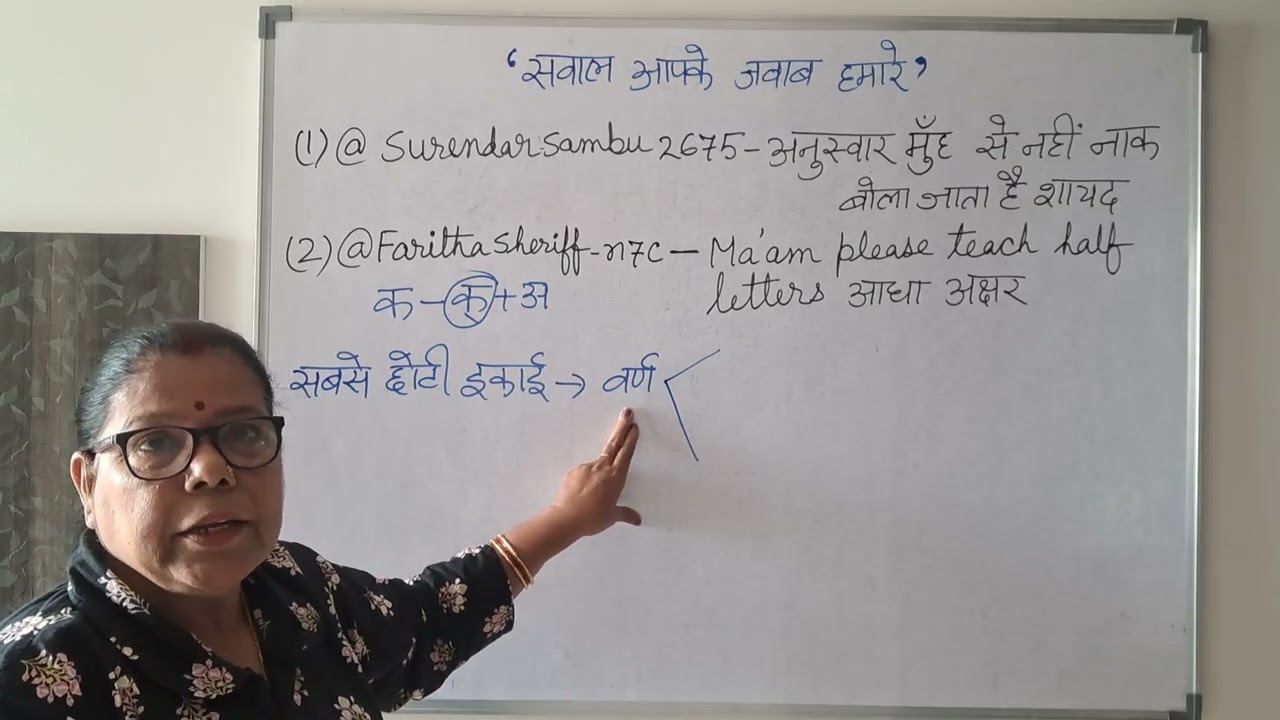 ‘सवाल आपके जवाब हमारे’
(1) @ Surendarsambu 2675 - अनुस्वार मुँह से नहीं नाक
बोला जाता है शायद
(2) @FarithaSheriff-n7c — Ma'am please teach half
letters आधा अक्षर
क - क् + अ
सबसे छोटी इकाई → वर्ण